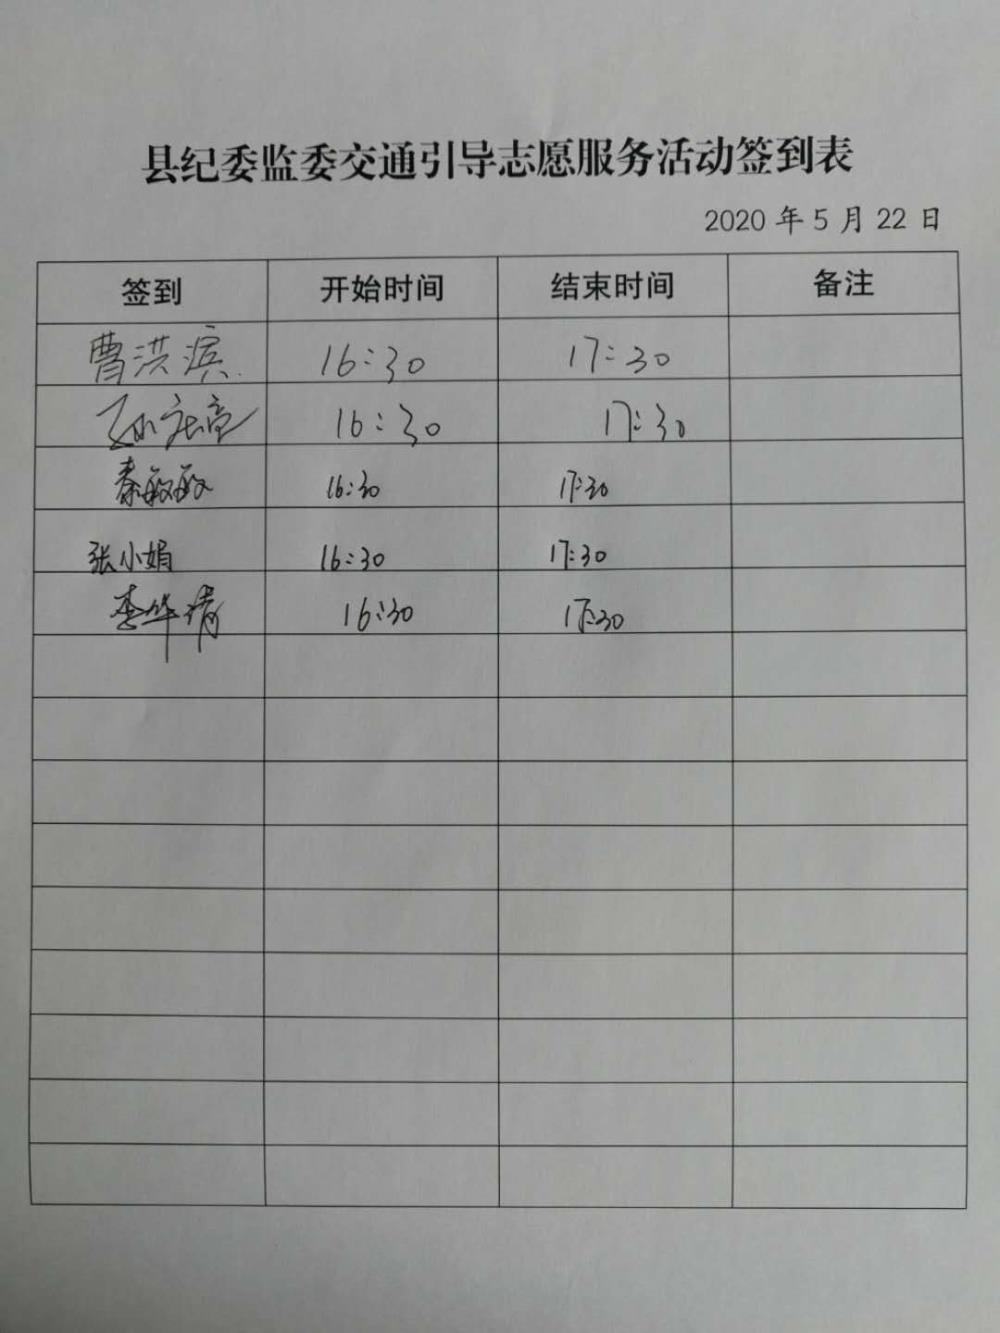 县纪委监委交通引导志愿服务活动签到表
2020 年 5 月 22 日
签到 开始时间 结束时间 备注
曹洪滨 16:30 17:30
孙 16:30 17:30
秦敏敏 16:30 17:30
张小娟 16:30 17:30
李华清 16:30 17:30